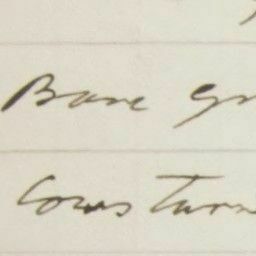 Bare gr
Cows turn